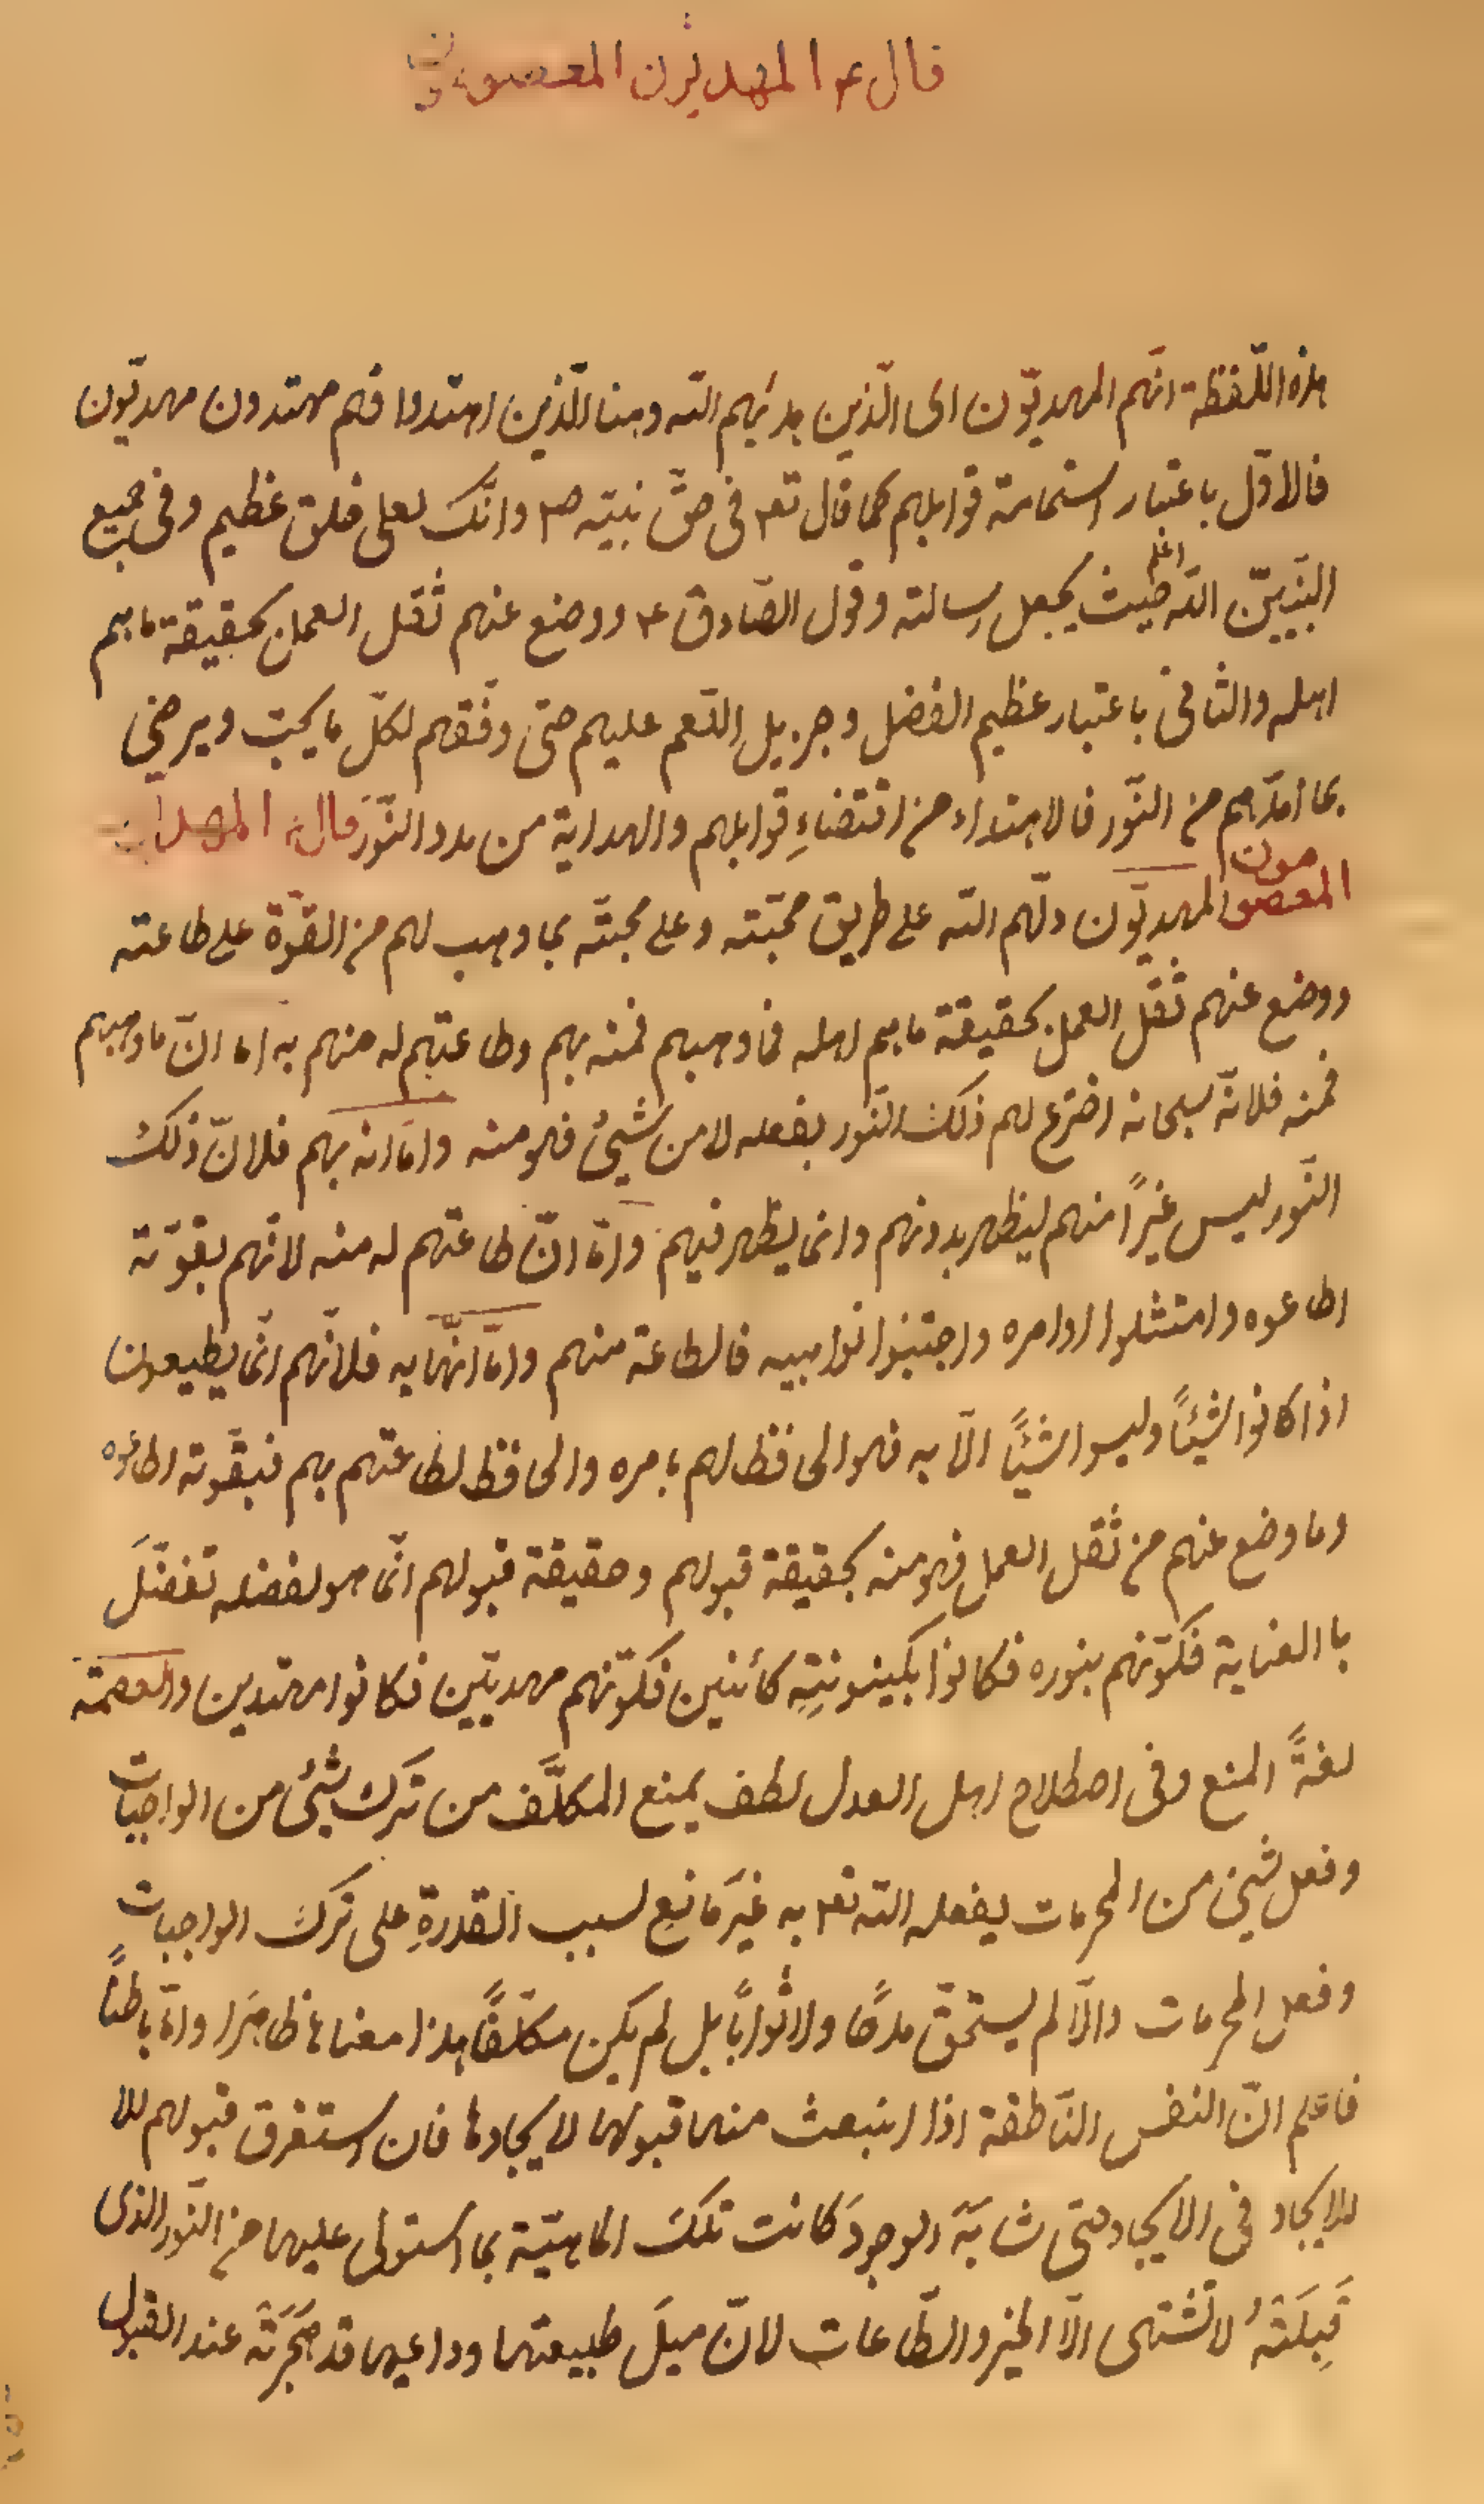 قال ع المهديون المعصومون
هذه اللّفظة انّهم المهديّون اى الّذين هديهم اللّه ومنا الّذين اهتدوا فهم مهتدون مهديّون
فالاوّل باعتبار استقامة قوابلهم كما قال تع۴ فى حقّ نبيّه ص۴ وانّك لعلى خلق عظيم وفى جميع
النّبيّين اللّه اعلم حيث يجعل رسالته وقول الصّادق ع ووضع عنهم ثقل العمل بحقيقة ما هم
اهله والثانى باعتبار عظيم الفضل وجزيل النّعم عليهم حتى وفّقهم لكلّ ما يحبّ ويرضى
بما امدّهم من النّور فالاهتداء من اقتضاءِ قوابلهم والهداية من مدد النّور قال ع المهديون
المعصومون المهديّون دلّهم اللّه على طريق محبّته وعلى محبّته بما وهب لهم من القوّة على طاعته
ووضع عنهم ثقل العمل بحقيقة ما هم اهله فما وهبهم فمنه بهم وطاعتهم له منهم به اما انّ ما وهبهم
فمنه فلانّه سبحانه اخترع لهم ذلك النّور بفعله لا من شيئ فهو منه وامّا انه بهم فلانّ ذلك
النّور ليس غيراً منهم ليظهر بدونهم وانما يظهر فيهم وامّا انّ طاعتهم له منه لانّهم بقوّته
اطاعوه وامتثلوا اوامره واجتنبوا نواهيه فالطاعة منهم وامّا انّها به فلانّهم انّما يطيعون
اذا كانوا شيئاً وليسوا شيئاً الّا به فهو الحافظ لهم بامره والحافظ لطاعتهم بهم فبقوّته اطاعوه
وما وضع عنهم من ثقل العمل فهو منه بحقيقة قبولهم وحقيقة قبولهم انّما هو بفضله تفضّلَ
با العناية فكوّنهم بنوره فكانوا بكينونتِهِ كائنين فكوّنهم مهديّين فكانوا مهتدين والعصمة
لغةً المنع وفى اصطلاح اهل العدل لطف يمنع المكلَّف من ترك شيئ من الواجبات
وفعل شيئ من المحرمات يفعله اللّه تع۴ به غيرَ مانعٍ لسبب القدرةِ على ترك الواجبات
وفعل المحرمات والّا لم يستحقّ مدحًا ولا ثوابًا بل لم يكن مكلّفًا هذا معناها ظاهرًا وامّا باطنًا
فاعلم انّ النفس النّاطقة اذا انبعث منها قبولها لايجادها فان استغرق قبولهم للا
للايجاد فى الايجاد حتى شابَهَ الوجودَ كانت تلك الماهيّة بما استولى عليها من النّور الذى
قَبِلَتْهُ لا تشتهى الّا الخير والطّاعات لانّ ميلَ طبيعتها وداعيها قد هَجَرَتْه عند القبول